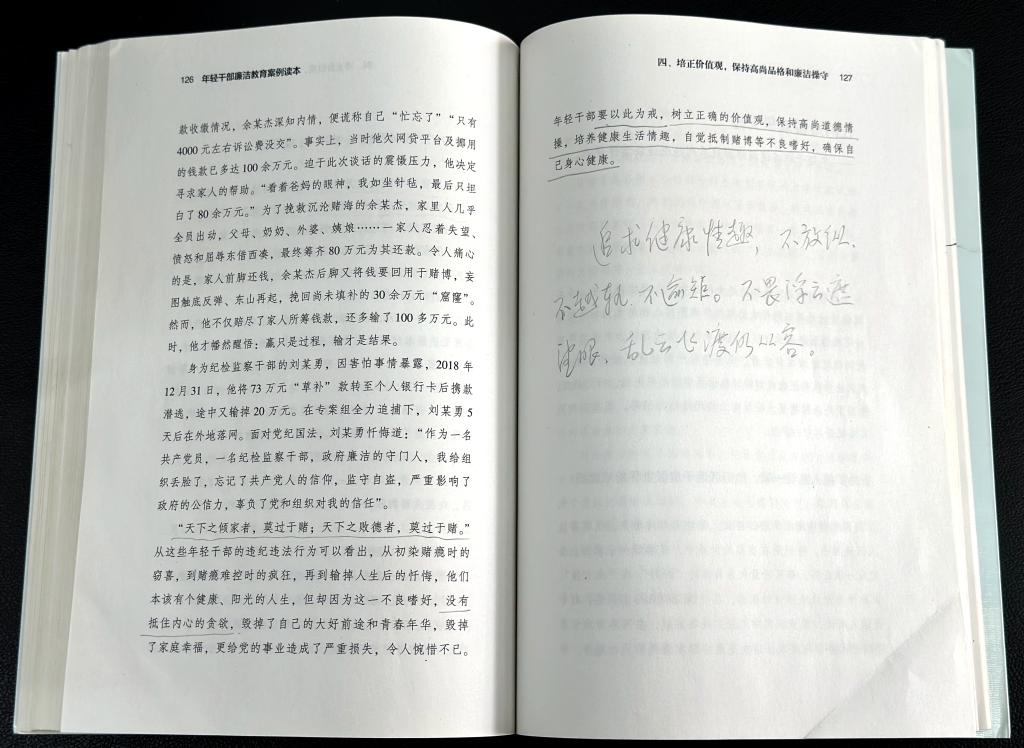 126 年轻干部廉洁教育案例读本
款收缴情况，余某杰深知内情，便谎称自己“忙忘了”“只有
4000元左右诉讼费没交”。事实上，当时他欠网贷平台及挪用
的钱款已多达100余万元。迫于此次谈话的震慑压力，他决定
寻求家人的帮助。“看着爸妈的眼神，我如坐针毡，最后只坦
白了80余万元。”为了挽救沉沦赌海的余某杰，家里人几乎
全员出动，父母、奶奶、外婆、姨娘……一家人忍着失望、
愤怒和屈辱东借西凑，最终筹齐80万元为其还款。令人痛心
的是，家人前脚还钱，余某杰后脚又将钱要回用于赌博，妄
图触底反弹、东山再起，挽回尚未填补的30余万元“窟窿”。
然而，他不仅赔尽了家人所筹钱款，还多输了100多万元。此
时，他才幡然醒悟：赢只是过程，输才是结果。
身为纪检监察干部的刘某勇，因害怕事情暴露，2018年
12月31日，他将73万元“草补”款转至个人银行卡后携款
潜逃，途中又输掉20万元。在专案组全力追捕下，刘某勇5
天后在外地落网。面对党纪国法，刘某勇忏悔道：“作为一名
共产党员，一名纪检监察干部，政府廉洁的守门人，我给组
织丢脸了，忘记了共产党人的信仰，监守自盗，严重影响了
政府的公信力，辜负了党和组织对我的信任”。
“天下之倾家者，莫过于赌；天下之败德者，莫过于赌。”
从这些年轻干部的违纪违法行为可以看出，从初染赌瘾时的
窃喜，到赌瘾难控时的疯狂，再到输掉人生后的忏悔，他们
本该有个健康、阳光的人生，但却因为这一不良嗜好，没有
抵住内心的贪欲，毁掉了自己的大好前途和青春年华，毁掉
了家庭幸福，更给党的事业造成了严重损失，令人惋惜不已。
四、培正价值观，保持高尚品格和廉洁操守 127
年轻干部要以此为戒，树立正确的价值观，保持高尚道德情
操，培养健康生活情趣，自觉抵制赌博等不良嗜好，确保自
己身心健康。
追求健康情趣，不放纵、
不越轨、不逾矩。不畏浮云遮
望眼，乱云飞渡仍从容。